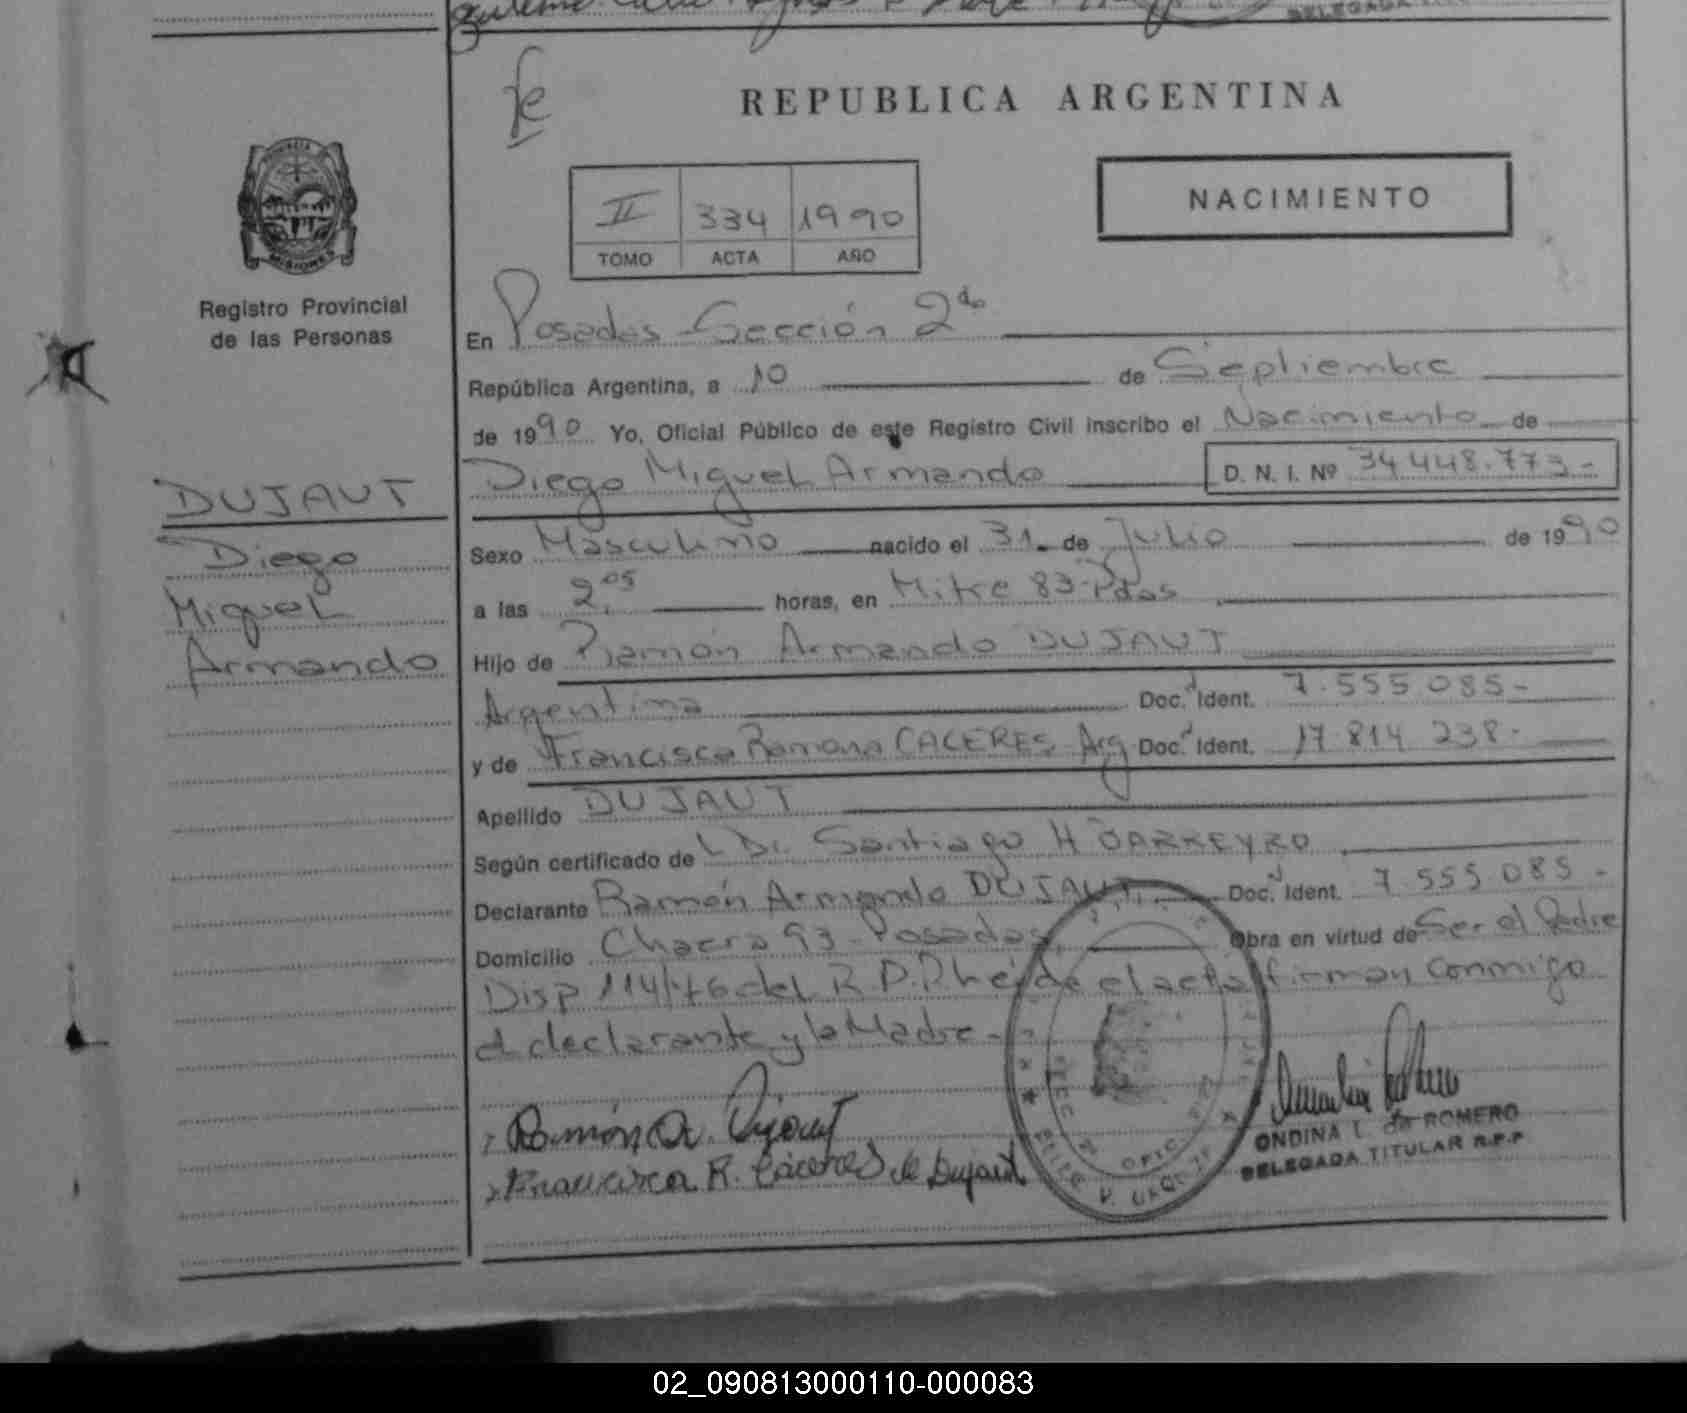 REPUBLICA ARGENTINA
NACIMIENTO
II 334 1990
TOMO ACTA AÑO
PROVINCIA
MISIONES
Registro Provincial
de las Personas
En Posadas Sección 2da
República Argentina, a 10 de Septiembre
de 1990 Yo, Oficial Público de este Registro Civil inscribo el Nacimiento de
Diego Miguel Armando D. N. I. Nº 34.448.773-
DUJAUT
Diego
Miguel
Armando
Sexo Masculino nacido el 31 de Julio de 1990
a las 2,05 horas, en Mitre 83-Pdas
Hijo de Ramón Armando DUJAUT
Argentina Doc. Ident. 7.555.085-
y de Francisca Ramona CACERES Arg Doc. Ident. 17.814.238-
Apellido DUJAUT
Según certificado de Dr. Santiago H BARREYRO
Declarante Ramón Armando DUJAUT Doc. Ident. 7.555.085-
Domicilio Chacra 93-Posadas, Obra en virtud de Ser el Padre
Disp 114/76 del R.P.P. leída el acta firman conmigo
el declarante y la Madre-
Ramón A. Dujaut
Francisca R. Cáceres de Dujaut
ONDINA L. de ROMERO
DELEGADA TITULAR R.P.P
02_090813000110-000083